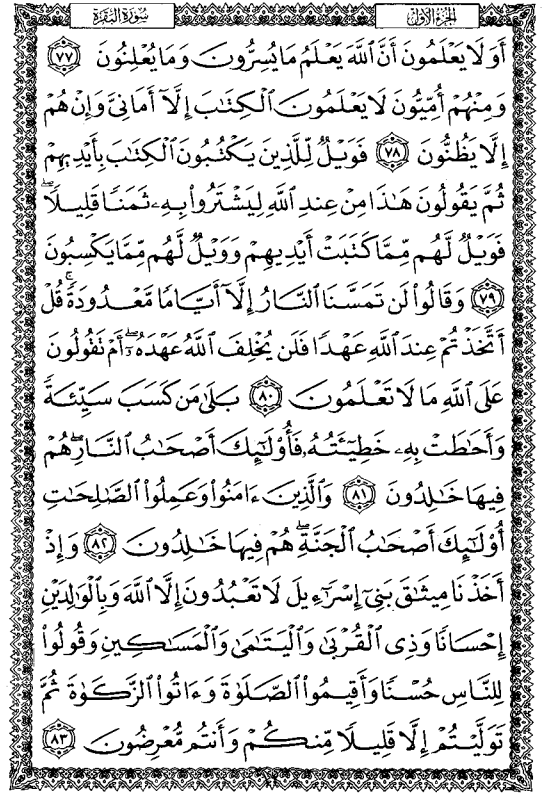 الجزء الأول
سورة البقرة
أَوَلَا يَعْلَمُونَ أَنَّ ٱللَّهَ يَعْلَمُ مَا يُسِرُّونَ وَمَا يُعْلِنُونَ ٧٧
وَمِنْهُمْ أُمِّيُّونَ لَا يَعْلَمُونَ ٱلْكِتَٰبَ إِلَّآ أَمَانِىَّ وَإِنْ هُمْ
إِلَّا يَظُنُّونَ ٧٨ فَوَيْلٌ لِّلَّذِينَ يَكْتُبُونَ ٱلْكِتَٰبَ بِأَيْدِيهِمْ
ثُمَّ يَقُولُونَ هَٰذَا مِنْ عِندِ ٱللَّهِ لِيَشْتَرُوا۟ بِهِۦ ثَمَنًا قَلِيلًاۖ
فَوَيْلٌ لَّهُم مِّمَّا كَتَبَتْ أَيْدِيهِمْ وَوَيْلٌ لَّهُم مِّمَّا يَكْسِبُونَ
٧٩ وَقَالُوا۟ لَن تَمَسَّنَا ٱلنَّارُ إِلَّآ أَيَّامًا مَّعْدُودَةًۚ قُلْ
أَتَّخَذْتُمْ عِندَ ٱللَّهِ عَهْدًا فَلَن يُخْلِفَ ٱللَّهُ عَهْدَهُۥٓۖ أَمْ تَقُولُونَ
عَلَى ٱللَّهِ مَا لَا تَعْلَمُونَ ٨٠ بَلَىٰ مَن كَسَبَ سَيِّئَةً
وَأَحَٰطَتْ بِهِۦ خَطِيٓـَٔتُهُۥ فَأُو۟لَٰٓئِكَ أَصْحَٰبُ ٱلنَّارِۖ هُمْ
فِيهَا خَٰلِدُونَ ٨١ وَٱلَّذِينَ ءَامَنُوا۟ وَعَمِلُوا۟ ٱلصَّٰلِحَٰتِ
أُو۟لَٰٓئِكَ أَصْحَٰبُ ٱلْجَنَّةِۖ هُمْ فِيهَا خَٰلِدُونَ ٨٢ وَإِذْ
أَخَذْنَا مِيثَٰقَ بَنِىٓ إِسْرَٰٓءِيلَ لَا تَعْبُدُونَ إِلَّا ٱللَّهَ وَبِٱلْوَٰلِدَيْنِ
إِحْسَانًا وَذِى ٱلْقُرْبَىٰ وَٱلْيَتَٰمَىٰ وَٱلْمَسَٰكِينِ وَقُولُوا۟
لِلنَّاسِ حُسْنًا وَأَقِيمُوا۟ ٱلصَّلَوٰةَ وَءَاتُوا۟ ٱلزَّكَوٰةَ ثُمَّ
تَوَلَّيْتُمْ إِلَّا قَلِيلًا مِّنكُمْ وَأَنتُم مُّعْرِضُونَ ٨٣